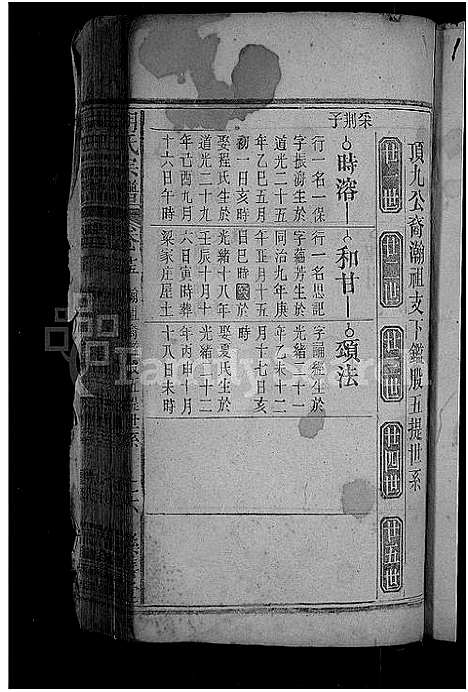 頂九公裔瀚祖支下鑑股五提世系
廿一世
廿二世
廿三世
廿四世
廿五世
采荆子
時溶
行一名一保
字振湖生於
道光二十五
年乙巳五月
初一日亥時
娶程氏生於
道光二十九
年己酉九月
十六日午時
和甘
行一名思記
字蘊芳生於
同治九年庚
年正月十五
日巳時歿於
光緒十八年
壬辰十月十
六日寅時葬
梁家庄屋土
頌法
字誦經生於
光緒二十一
年乙未十二
月十七日亥
時
娶夏氏生於
光緒二十二
年丙申十月
十八日未時
氏宗譜